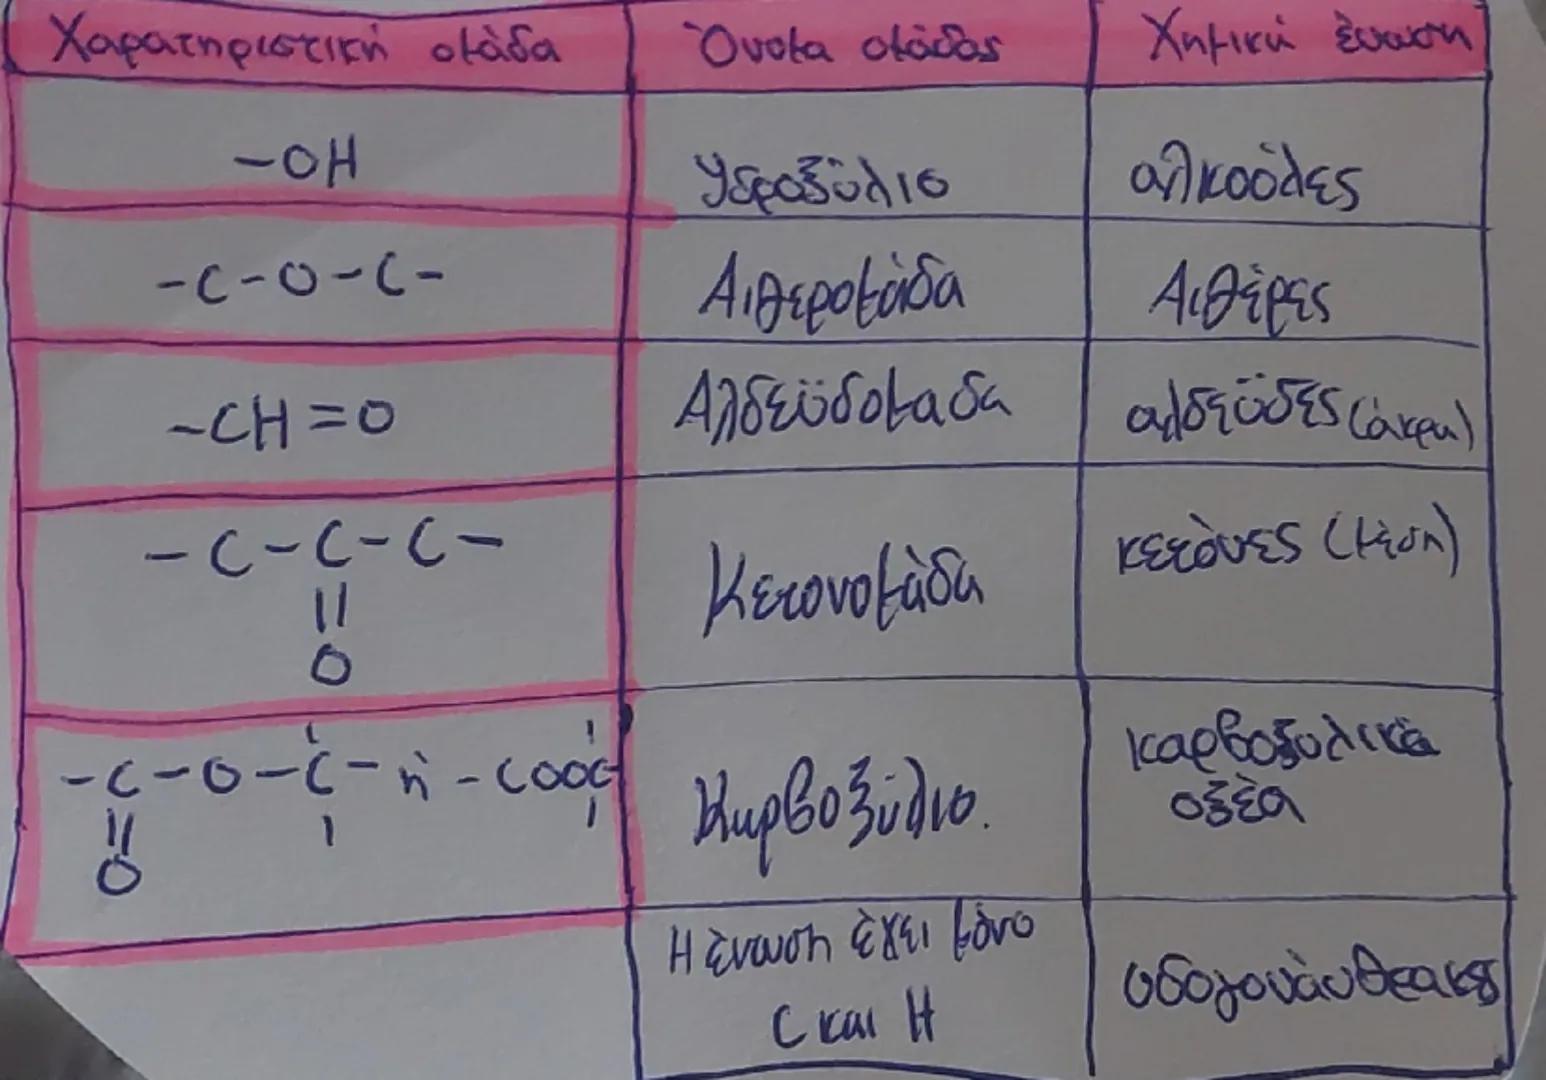 Χαρατηριστική ομάδα Όνομα ομάδας Χημική ένωση
-OH Υδροξύλιο αλκοόλες
-C-O-C- Αιθερομάδα Αιθέρες
-CH=O Αλδεϋδομαδα αλδεϋδες (άκρη)
-C-C-C- Κετονομάδα κετόνες (μέση)
||
O
-C-O-C- ή -COOC καρβοξυλικά
|| Καρβοξύλιο. οξέα
O
Η ένωση έχει μόνο
C και H υδογονάνθρακες